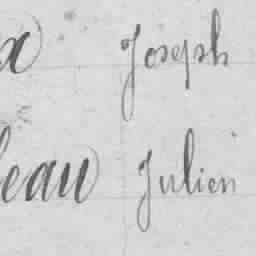 x Joseph
eau Julien